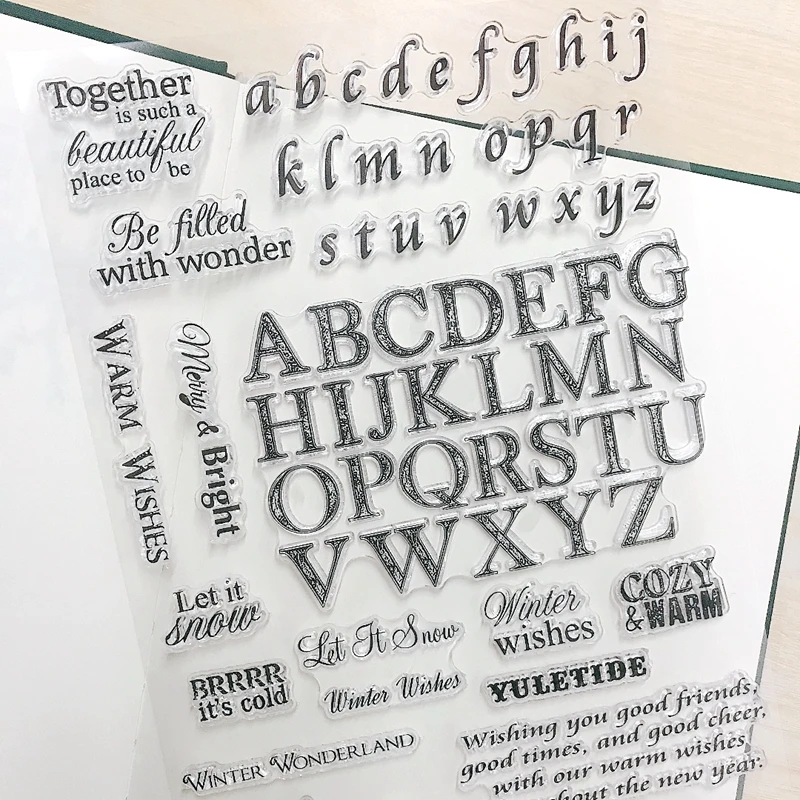 Together
is such a
beautiful
place to be
a b c d e f g h i j
k l m n o p q r
s t u v w x y z
Be filled
with wonder
WARM WISHES
Merry & Bright
ABCDEFG
HIJKLMN
OPQRSTU
VWXYZ
Let it
snow
Let It Snow
Winter Wishes
Winter
wishes
COZY
& WARM
BRRRR
it's cold
YULETIDE
WINTER WONDERLAND
Wishing you good friends,
good times, and good cheer,
with our warm wishes
the new year.